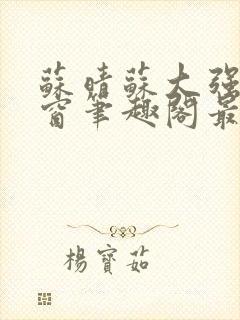 蘇晴蘇大強
窗筆趣閣最
楊寶茹